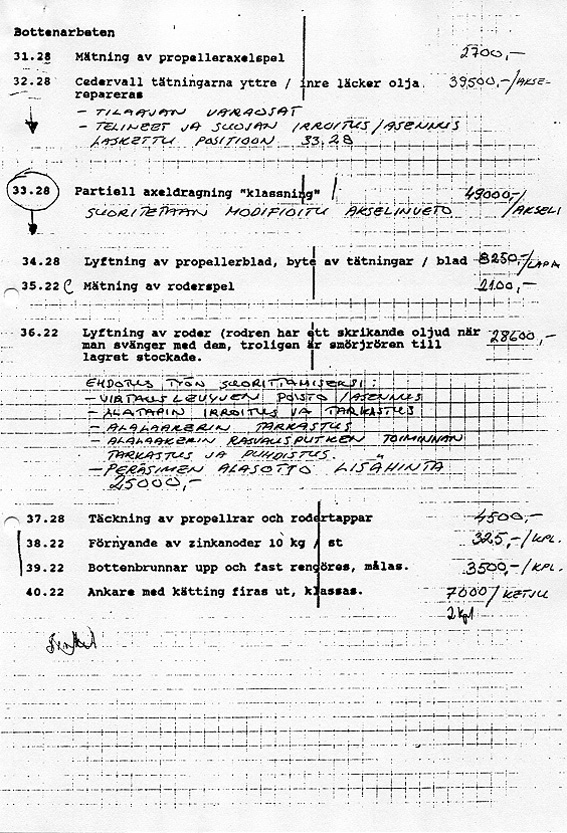 Bottenarbeten
31.28 Mätning av propelleraxelspel 2700,-
32.28 Cedervall tätningarna yttre / inre läcker olja. 39500,-/AKSE-
repareras
- TILAAJAN VARAOSAT
- TELINEET JA SUOJAN IRROITUS/ASENNUS
LASKETTU POSITIOON 33.28
33.28 Partiell axeldragning "klassning" / 49000,-/
SUORITETAAN MODIFIOITU AKSELINVETO /AKSELI
34.28 Lyftning av propellerblad, byte av tätningar / blad 8250,-/LAPA
35.22 Mätning av roderspel 2100,-
36.22 Lyftning av roder (rodren har ett skrikande oljud när 28600,-
man svänger med dem, troligen är smörjrören till
lagret stockade.
EHDOTUS TYÖN SUORITTAMISEKSI:
- VIRTAUSLEVYJEN POISTO/ASENNUS
- ALATAPIN IRROITUS JA TARKASTUS
- ALALAAKERIN TARKASTUS
- ALALAAKERIN RASVAUSPUTKEN TOIMINNAN
TARKASTUS JA PUHDISTUS
- PERÄSIMEN ALASOTTO LISÄHINTA
25000,-
37.28 Täckning av propellrar och rodertappar 4500,-
38.22 Förnyande av zinkanoder 10 kg / st 325,-/KPL.
39.22 Bottenbrunnar upp och fast rengöres, målas. 3500,-/KPL.
40.22 Ankare med kätting firas ut, klassas. 7000/KETJU
2 kpl